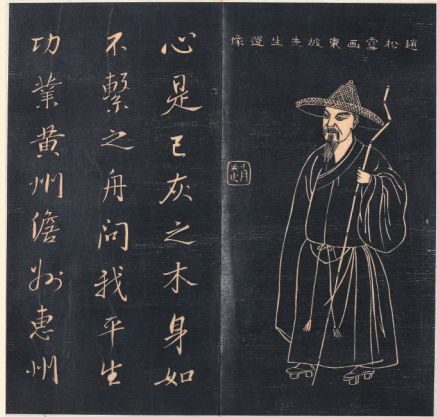 趙松雪画東坡先生遺像
心是已灰之木身如
不繫之舟問我平生
功業黄州儋州惠州